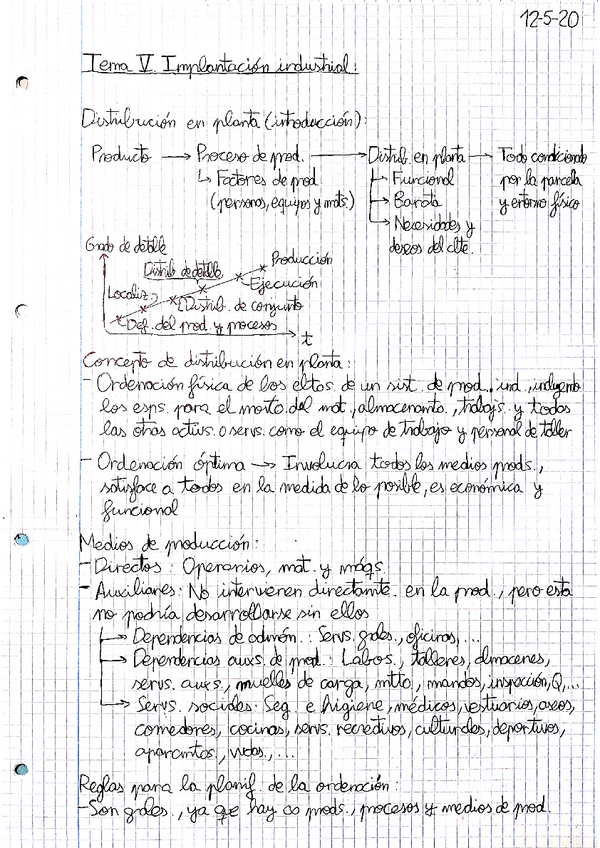 12-5-20
Tema V. Implantación industrial:
Distribución en planta (introducción):
Producto → Proceso de prod. → Distrib. en planta → Todo condicionado
↳ Factores de prod. → Funcional por la parcela
(personas, equipos y mats.) → Barata y entorno físico
→ Necesidades y
deseos del clte.
Grado de detalle
Producción
Distrib. de detalle
Ejecución
Localiz.
Distrib. de conjunto
Def. del prod. y procesos
t
Concepto de distribución en planta:
- Ordenación física de los eltos. de un sist. de prod. ind., incluyendo
los esps. para el movto. del mat., almacenamto., trabajs. y todas
las otras activs. o servs. como el equipo de trabajo y personal de taller
- Ordenación óptima → Involucra todos los medios prods.,
satisface a todos en la medida de lo posible, es económica y
funcional
Medios de producción:
- Directos: Operarios, mat. y máqs.
- Auxiliares: No intervienen directamte. en la prod., pero esta
no podría desarrollarse sin ellos
→ Dependencias de admón.: Servs. grales., oficinas, ...
→ Dependencias auxs. de prod.: Labos., talleres, almacenes,
servs. auxs., muelles de carga, mtto., mandos, inspección, Q, ...
→ Servs. sociales: Seg. e higiene, médicos, vestuarios, aseos,
comedores, cocinas, servs. recreativos, culturales, deportivos,
aparcamtos., vvdas., ...
Reglas para la planif. de la ordenación:
- Son grales., ya que hay ∞ prods., procesos y medios de prod.